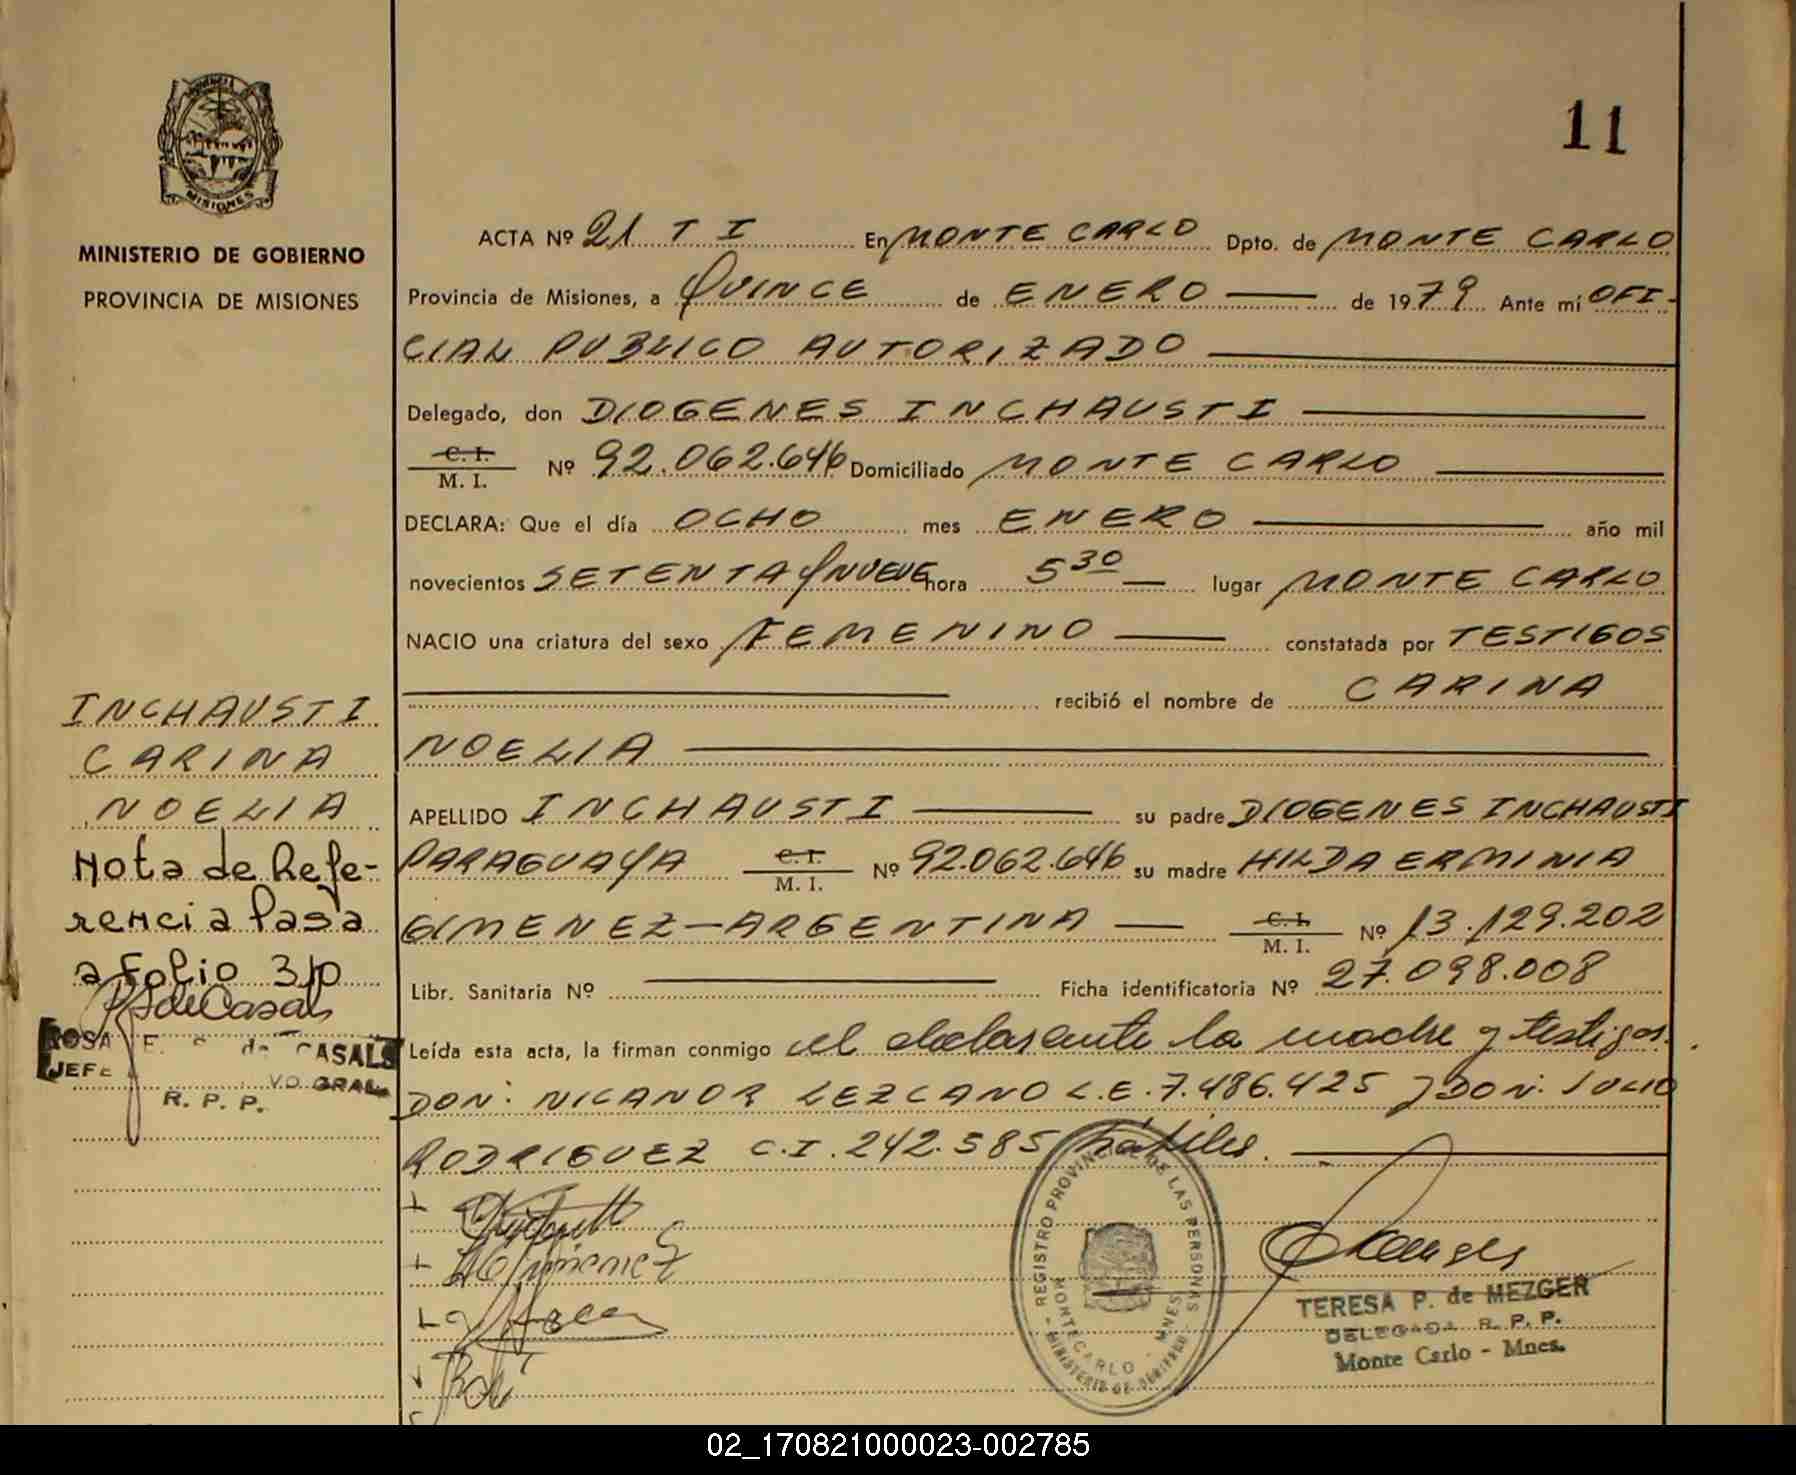 11
MISIONES
MINISTERIO DE GOBIERNO
PROVINCIA DE MISIONES
ACTA Nº 21 T I En MONTE CARLO Dpto. de MONTE CARLO
Provincia de Misiones, a QUINCE de ENERO de 1979 Ante mí OFI-
CIAL PUBLICO AUTORIZADO
Delegado, don DIOGENES INCHAUSTI
C. I.
M. I. Nº 92.062.646 Domiciliado MONTE CARLO
DECLARA: Que el día OCHO mes ENERO año mil
novecientos SETENTA Y NUEVE hora 5 30 lugar MONTE CARLO
NACIO una criatura del sexo FEMENINO constatada por TESTIGOS
recibió el nombre de CARINA
NOELIA
APELLIDO INCHAUSTI su padre DIOGENES INCHAUSTI
PARAGUAYA C. I. M. I. Nº 92.062.646 su madre HILDA ERMINIA
GIMENEZ - ARGENTINA C. I. M. I. Nº 13.129.202
Libr. Sanitaria Nº Ficha identificatoria Nº 27.098.008
Leída esta acta, la firman conmigo el declarante la madre y testigos.
DON: NICANOR LEZCANO L.E. 7.486.425 y DON: JULIO
RODRIGUEZ C.I. 242.585 hábiles.
INCHAUSTI
CARINA
NOELIA
Nota de Refe-
rencia Pasa
a Folio 310
ROSA E. de CASALS
JEFE
R. P. P.
REGISTRO PROVINCIAL DE LAS PERSONAS
MONTECARLO - MNES.
- MINISTERIO DE GOBIERNO -
TERESA P. de MEZGER
DELEGADA R. P. P.
Monte Carlo - Mnes.
02_170821000023-002785